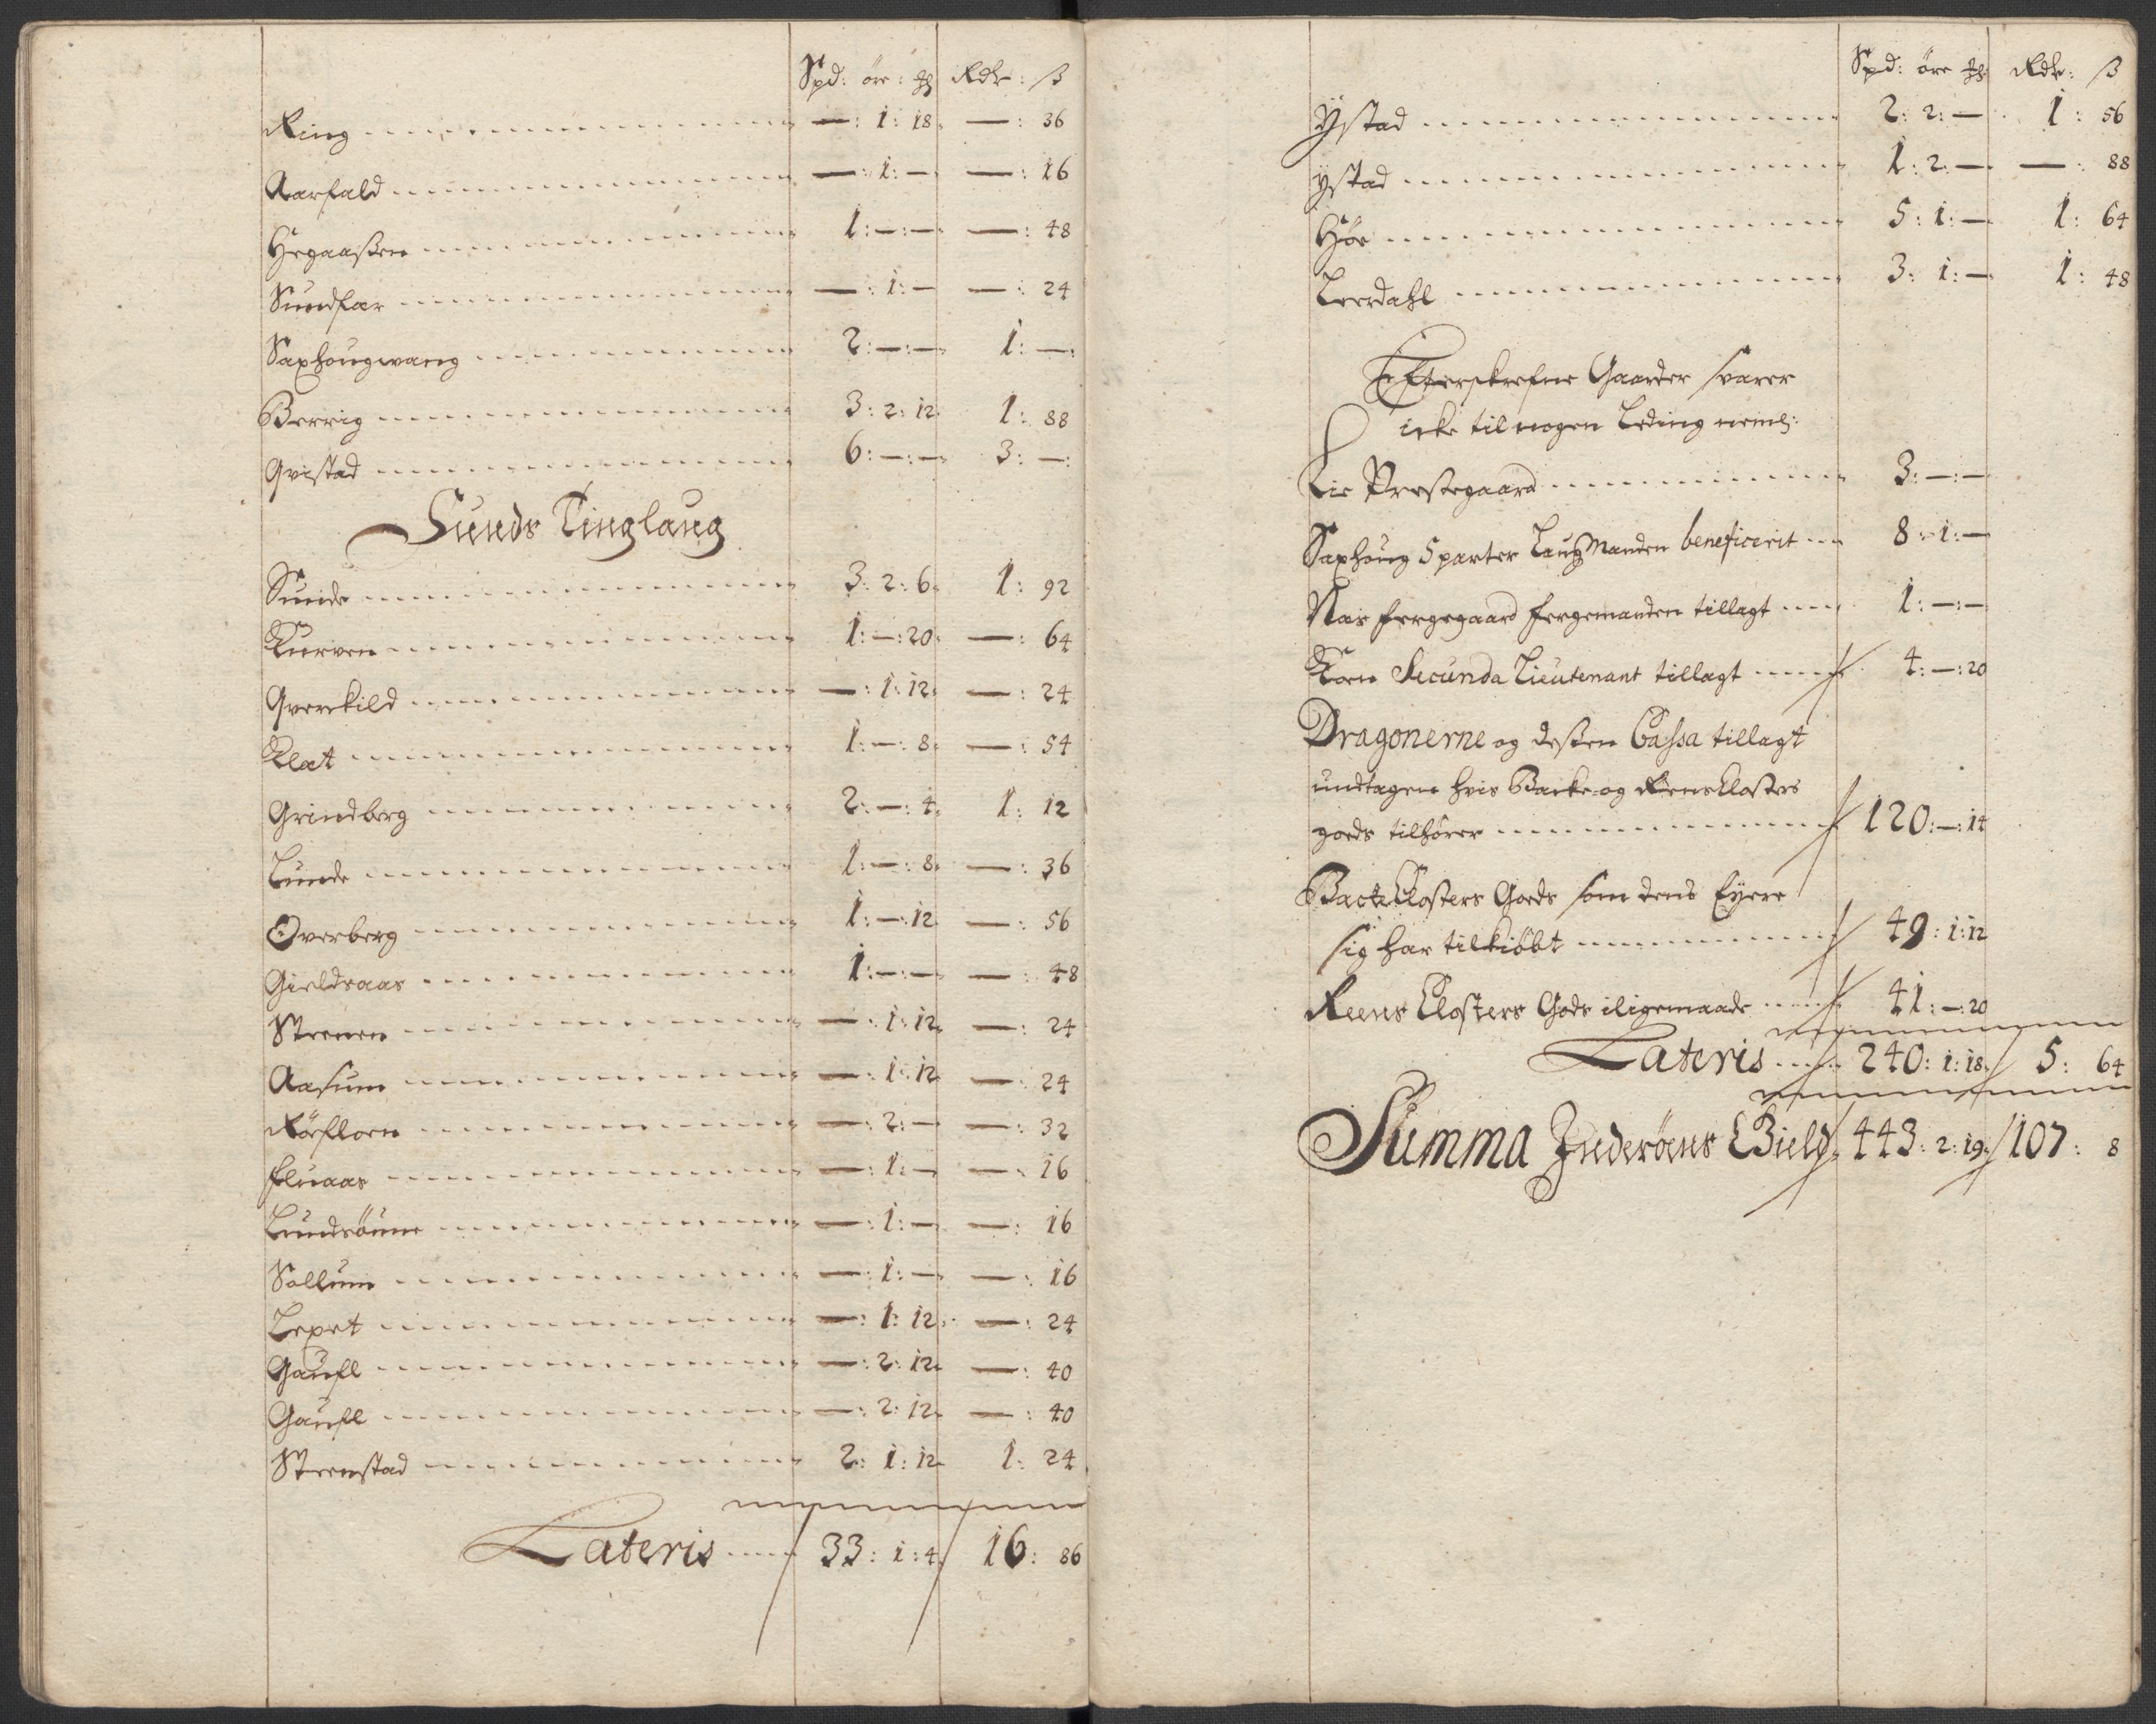 Spd: öre: ℔ Rdr: ß
Ring —: 1: 18 —: 36
Aarfald —: 1: — —: 16
Hegaaßen 1: —: — —: 48
Sundfær —: 1: — —: 24
Saxhougwang 2: —: — 1: —:
Berrig 3: 2: 12 1: 88
Qvistad 6: —: — 3: —:
Sunds Tinglaug
Sunde 3: 2: 6 1: 92
Kurven 1: —: 20 —: 64
Qverkild —: 1: 12 —: 24
Klæt 1: —: 8 —: 54
Grindberg 2: —: 4 1: 12
Lunde 1: —: 8 —: 36
Overberg 1: —: 12 —: 56
Gieldsaas 1: —: — —: 48
Strenen —: 1: 12 —: 24
Aasum —: 1: 12 —: 24
Rörfloen —: 2: — —: 32
—: 1: — —: 16
—: 1: — —: 16
Sollum —: 1: — —: 16
—: 1: 12 —: 24
Gaufl —: 2: 12 —: 40
Gaufl —: 2: 12 —: 40
Steenstad 2: 1: 12 1: 24
Lateris 33: 1: 4 16: 86
Spd: öre ℔ Rdr: ß
Ÿstad 2: 2: — 1: 56
Ÿstad 1: 2: — —: 88
Höe 5: 1: — 1: 64
Leerdahl 3: 1: — 1: 48
Efterskrefne Gaarder svarer
icke til nogen Leding neml:
Lie Prestegaard 3: —: —
Saxhoug 5 parter Laugmanden beneficerit 8: 1: —
Nas fergegaard fergemanden tillagt 1: —: —
Korn Secunda Lieutenant tillagt 4: —: 20
Dragonerne og deßen Cassa tillagt
undtagen hvis Backe- og Reensklosters
goeds tilhörer 120: —: 14
Backe Closters Goeds som dend Eyere
sig har tilkiöbt 49: 1: 12
Reens Closters Gods iligemaade 41: —: 20
Lateris 240: 1: 18 5: 64
Summa Inderöens Gield 443: 2: 19 107: 8